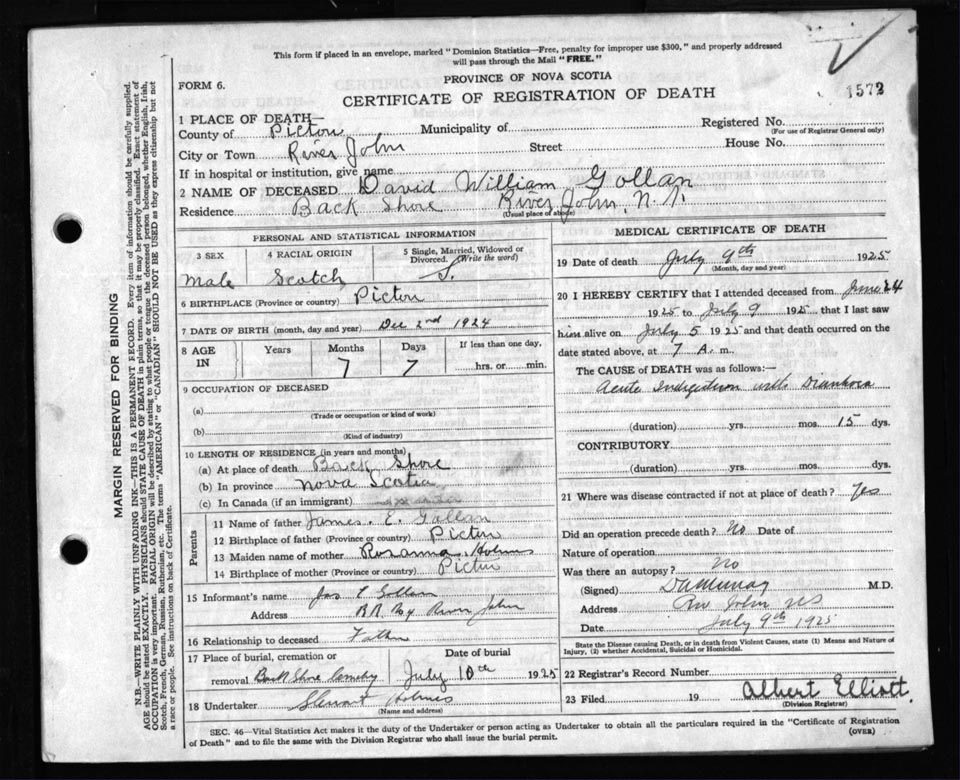 This form if placed in an envelope, marked "Dominion Statistics—Free, penalty for improper use $300," and properly addressed
will pass through the Mail "FREE."
FORM 6.
PROVINCE OF NOVA SCOTIA
CERTIFICATE OF REGISTRATION OF DEATH
1572
1 PLACE OF DEATH—
County of Pictou Municipality of Registered No.
(For use of Registrar General only)
City or Town River John Street House No.
If in hospital or institution, give name
2 NAME OF DECEASED David William Gollan
Residence Back Shore River John, N.S.
(Usual place of abode)
PERSONAL AND STATISTICAL INFORMATION
3 SEX 4 RACIAL ORIGIN 5 Single, Married, Widowed or
Divorced. (Write the word)
Male Scotch S.
6 BIRTHPLACE (Province or country) Pictou
7 DATE OF BIRTH (month, day and year) Dec 2nd 1924
8 AGE IN Years Months Days If less than one day,
7 7 hrs. or min.
9 OCCUPATION OF DECEASED
(a)
(Trade or occupation or kind of work)
(b)
(Kind of industry)
10 LENGTH OF RESIDENCE (in years and months)
(a) At place of death Back Shore
(b) In province Nova Scotia
(c) In Canada (if an immigrant)
Parents
11 Name of father James. E. Gollan
12 Birthplace of father (Province or country) Pictou
13 Maiden name of mother Rosanna Holmes
14 Birthplace of mother (Province or country) Pictou
15 Informant's name Jas E Gollan
Address R.R. No River John
16 Relationship to deceased Father
17 Place of burial, cremation or Date of burial
removal Back Shore July 10th 1925
18 Undertaker Stewart Holmes
(Name and address)
MEDICAL CERTIFICATE OF DEATH
19 Date of death July 9th 1925
(Month, day and year)
20 I HEREBY CERTIFY that I attended deceased from June 24
1925 to July 9 1925 that I last saw
him alive on July 5 1925 and that death occurred on
date stated above, at 7 A. m.
The CAUSE of DEATH was as follows:—
Acute Indigestion with Diarrhoea
(duration) yrs. mos. 15 dys.
CONTRIBUTORY.
(duration) yrs. mos. dys.
21 Where was disease contracted if not at place of death? Yes
Did an operation precede death? No Date of
Nature of operation
Was there an autopsy? No
(Signed) Murray M.D.
Address Riv John NS
Date July 9th 1925
State the Disease causing Death, or in death from Violent Causes, state (1) Means and Nature of
Injury, (2) whether Accidental, Suicidal or Homicidal.
22 Registrar's Record Number
23 Filed 19 Albert Elliott
(Division Registrar)
SEC. 46—Vital Statistics Act makes it the duty of the Undertaker or person acting as Undertaker to obtain all the particulars required in the "Certificate of Registration
of Death" and to file the same with the Division Registrar who shall issue the burial permit.
(OVER)
MARGIN RESERVED FOR BINDING
N.B.—WRITE PLAINLY WITH UNFADING INK—THIS IS A PERMANENT RECORD. Every item of information should be carefully supplied.
AGE should be stated EXACTLY. PHYSICIANS should STATE CAUSE OF DEATH in plain terms, so that it may be properly classified. Exact statement of
OCCUPATION is very important. RACIAL ORIGIN will be described by stating to what people or tongue the deceased person belonged, whether English, Irish,
Scotch, French, German, Russian, Ruthenian, etc. The terms "AMERICAN" or "CANADIAN" SHOULD NOT BE USED as they express citizenship but not
a race or people. See instructions on back of Certificate.